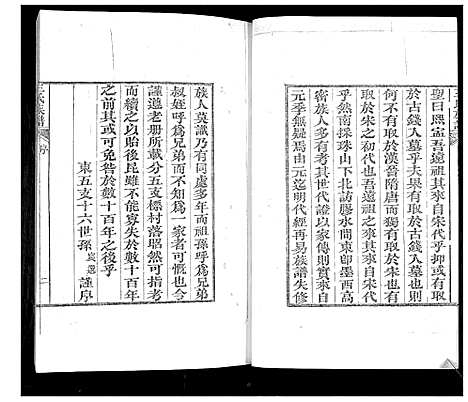 聖曰熈寧吾遠祖其來自宋代乎抑或有取
於古錢入墓乎夫果有取於古錢入墓也則
何不有取於漢晉隋唐而獨有取於宋也有
取於宋者宋之初代也吾遠祖之來其自宋代
乎然南採珠山下北訪膠水間東卽墨西高
密族人多有者其世代證以家傳則實來自
元季無疑焉由元迄明代經再易族譜失修
族人莫識乃有同處多年而祖孫呼爲兄弟
叔姪呼爲兄弟而不知爲一家者可慨也今
謹遵老册所載分五支標村落昭然可指考
而續之以貽後昆雖不能寧失於數十百年
之前其或可免咎於數十百年之後乎
東五支十六世孫 選 謹序
王氏族譜 序 二